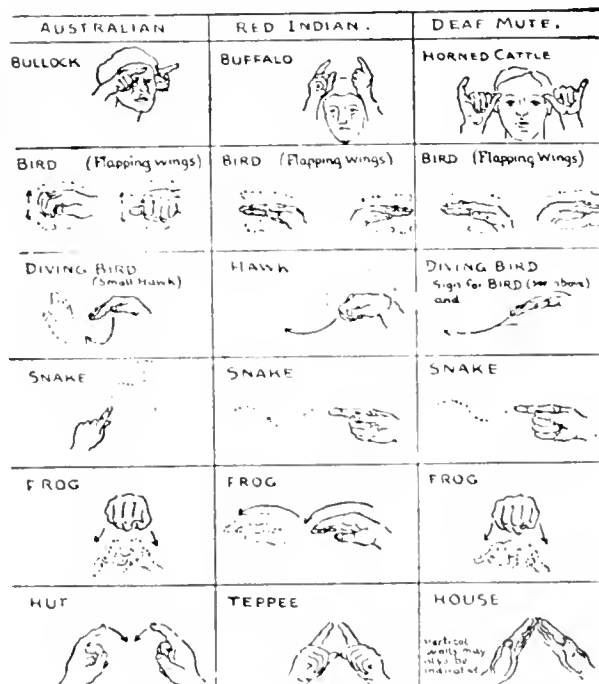 AUSTRALIAN
RED INDIAN.
DEAF MUTE.
BULLOCK
BUFFALO
HORNED CATTLE
BIRD (Flapping wings)
BIRD (Flapping Wings)
BIRD (Flapping Wings)
DIVING BIRD
(Small Hawk)
HAWK
DIVING BIRD
Sign for BIRD (see above)
and
SNAKE
SNAKE
SNAKE
FROG
FROG
FROG
HUT
TEPPEE
HOUSE
Vertical
walls may
also be
indicated